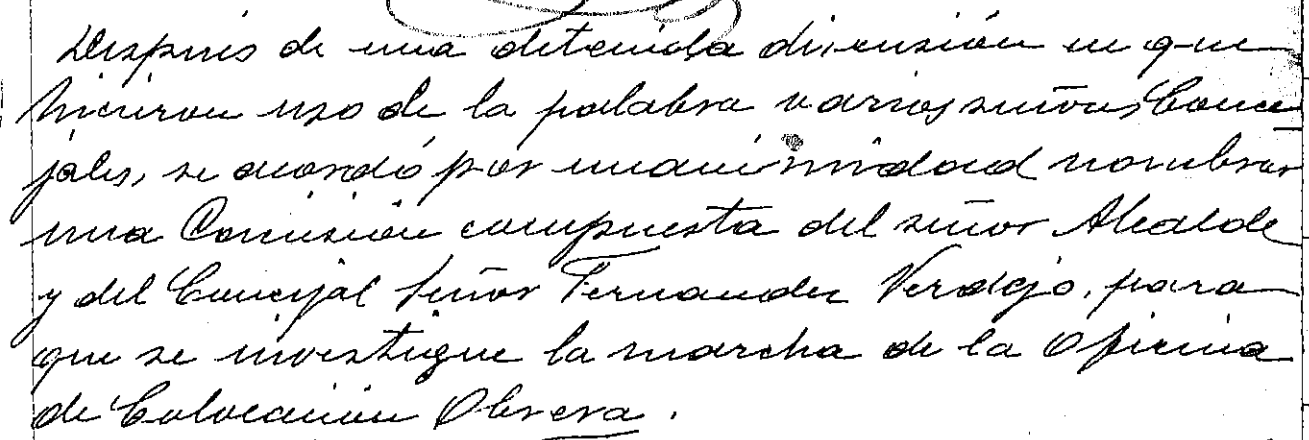 Después de una detenida discusión en que
hicieron uso de la palabra varios señores Conce
jales, se acordó por unanimidad nombrar
una Comisión compuesta del señor Alcalde
y del Concejal señor Fernandez Verdejo, para
que se investigue la marcha de la Oficina
de Colocación Obrera.